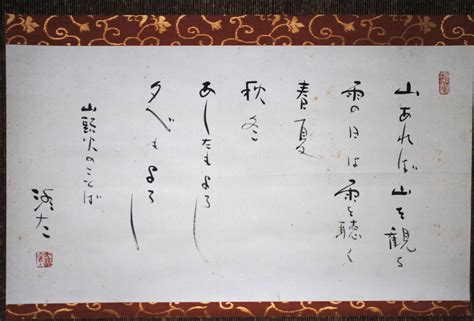 山あれば山を観る
雨の日は雨を聴く
春夏
秋冬
あしたもよろし
夕べもよろし
山頭火のことば